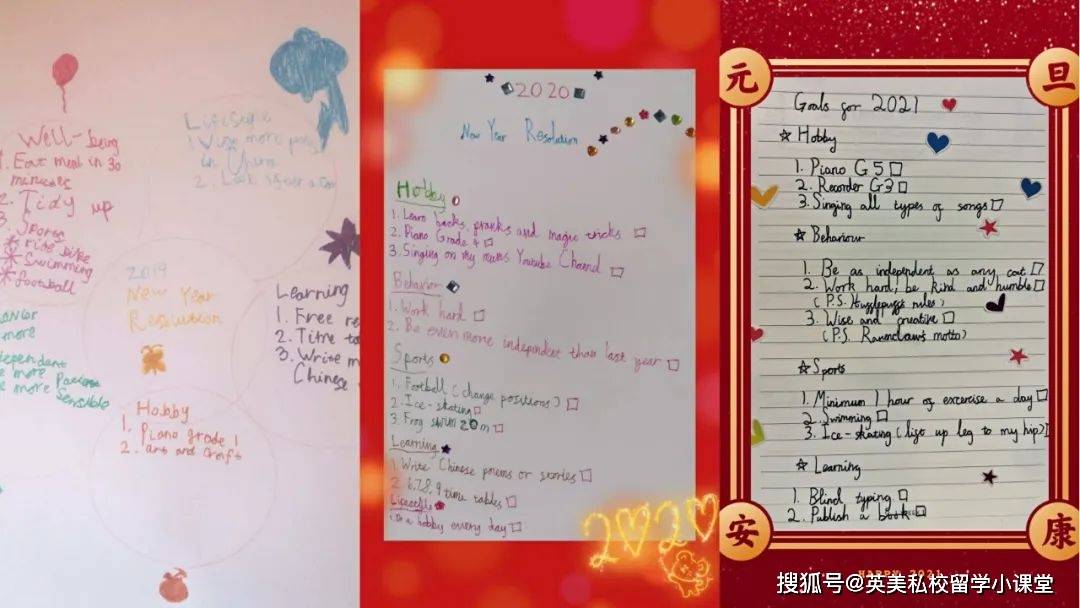 Well-being
1. Eat meal in 30
minutes
2. Tidy up
3. Sports
ride bike
Swimming
football
Lifestyle
1. Use more
in China
2. Look after a
2019
New Year
Resolution
more
dependant
e more
e more Sensible
Learning
1. Free re
2. Time ta
3. Write m
Chinese
Hobby
1. Piano grade 1
2. art and craft
2020
New Year Resolution
Hobby
1. Learn hacks, pranks and magic tricks
2. Piano Grade 4
3. Singing on my mums Youtube Channel
Behavior
1. Work hard
2. Be even more independent than last year
Sports
1. Football (change positions)
2. Ice-skating
3. Frog swim 20m
Learning
1. Write Chinese poems or stories
2. 6,7,8,9 time tables
a hobby every day
2020
元旦
Goals for 2021
Hobby
1. Piano G5
2. Recorder G3
3. Singing all types of songs
Behaviour
1. Be as independent as any cat
2. Work hard, be kind and humble
(P.S. Hufflepuff rules)
3. Wise and creative
(P.S. Ravenclaws motto)
Sports
1. Minimum 1 hour of excercise a day
2. Swimming
3. Ice-skating (lift up leg to my hip)
Learning
1. Blind typing
2. Publish a book
安康
HAPPY 2021
搜狐号@英美私校留学小课堂